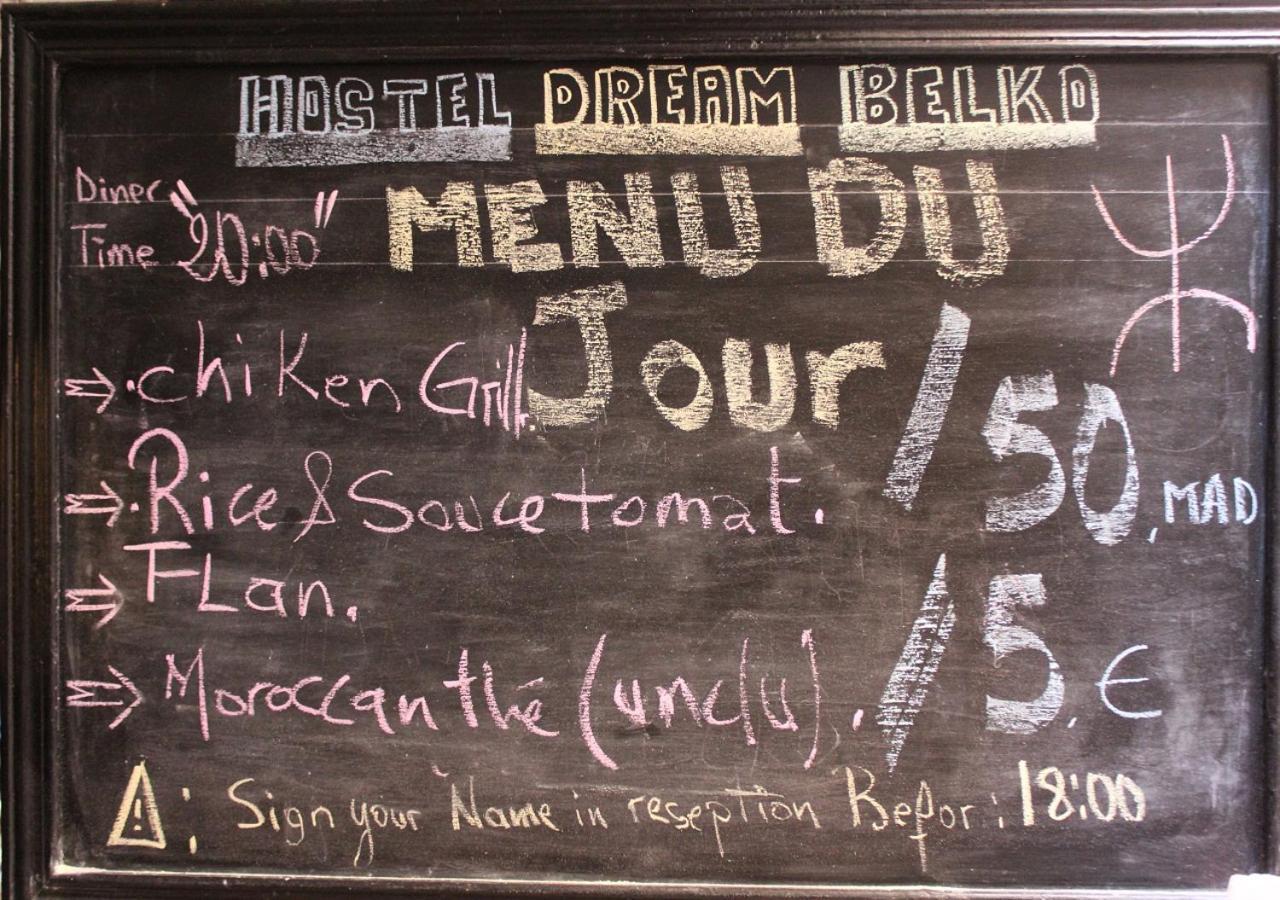 HOSTEL DREAM BELKO
Diner
Time "20:00"
MENU DU
Jour
⇒ . chiKen Grill.
⇒ . Rice & Souce tomat.
⇒ FLan.
⇒ Moroccan thé (unclu).
/ 50, MAD
/ 5, €
⚠ : Sign your Name in reseption Befor : 18:00